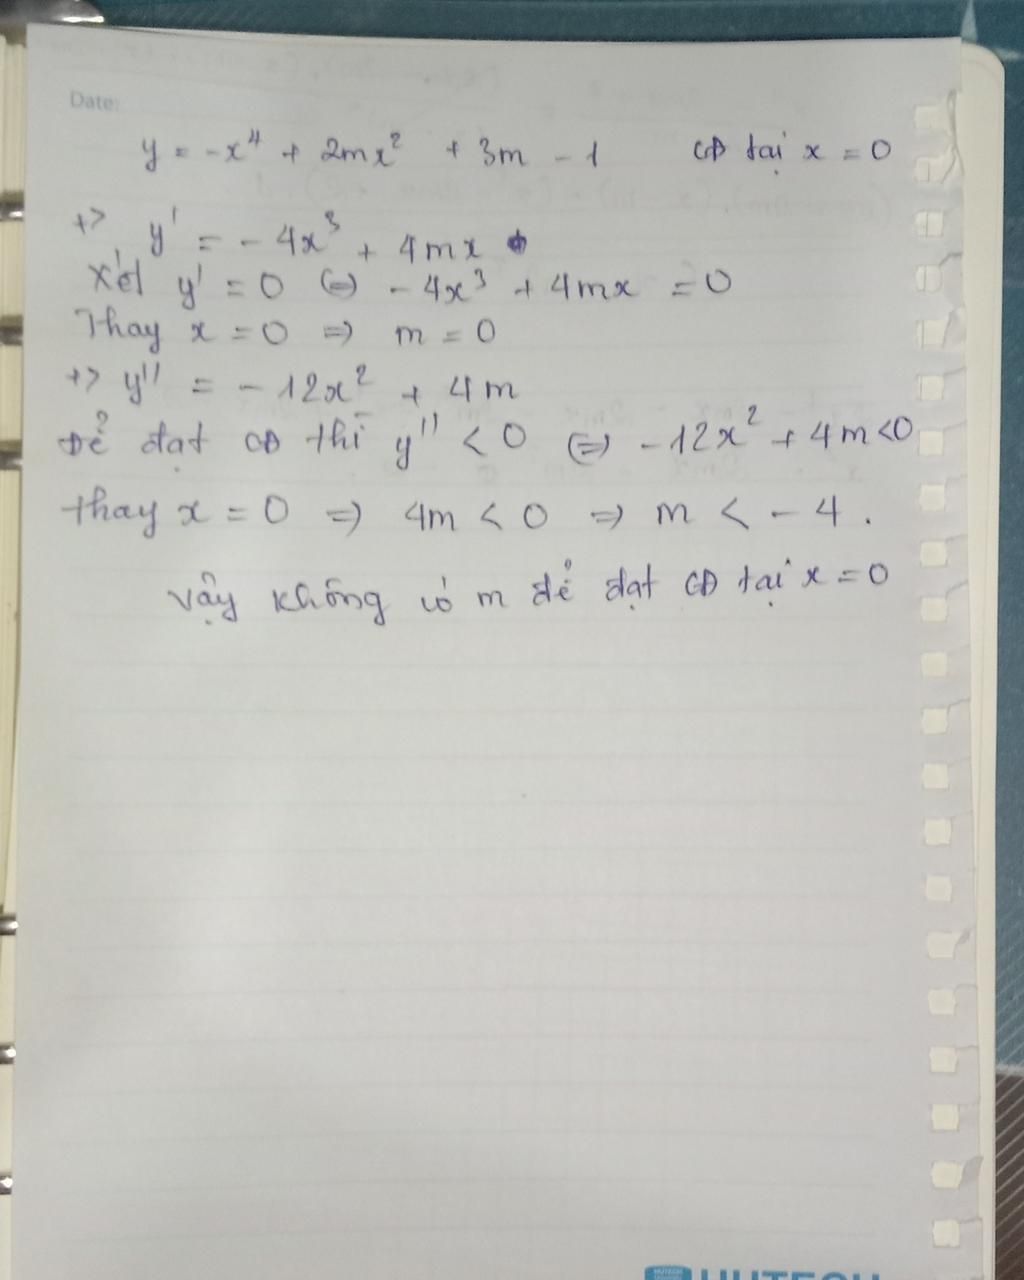 Date:
y = -x⁴ + 2mx² + 3m - 1 CĐ tại x = 0
+> y' = - 4x³ + 4mx
Xét y' = 0 (=) - 4x³ + 4mx = 0
Thay x = 0 => m = 0
+> y'' = - 12x² + 4m
Để đạt CĐ thì y'' < 0 (=) -12x² + 4m < 0
thay x = 0 => 4m < 0 => m < - 4 .
Vậy không có m để đạt CĐ tại x = 0
HUTECH